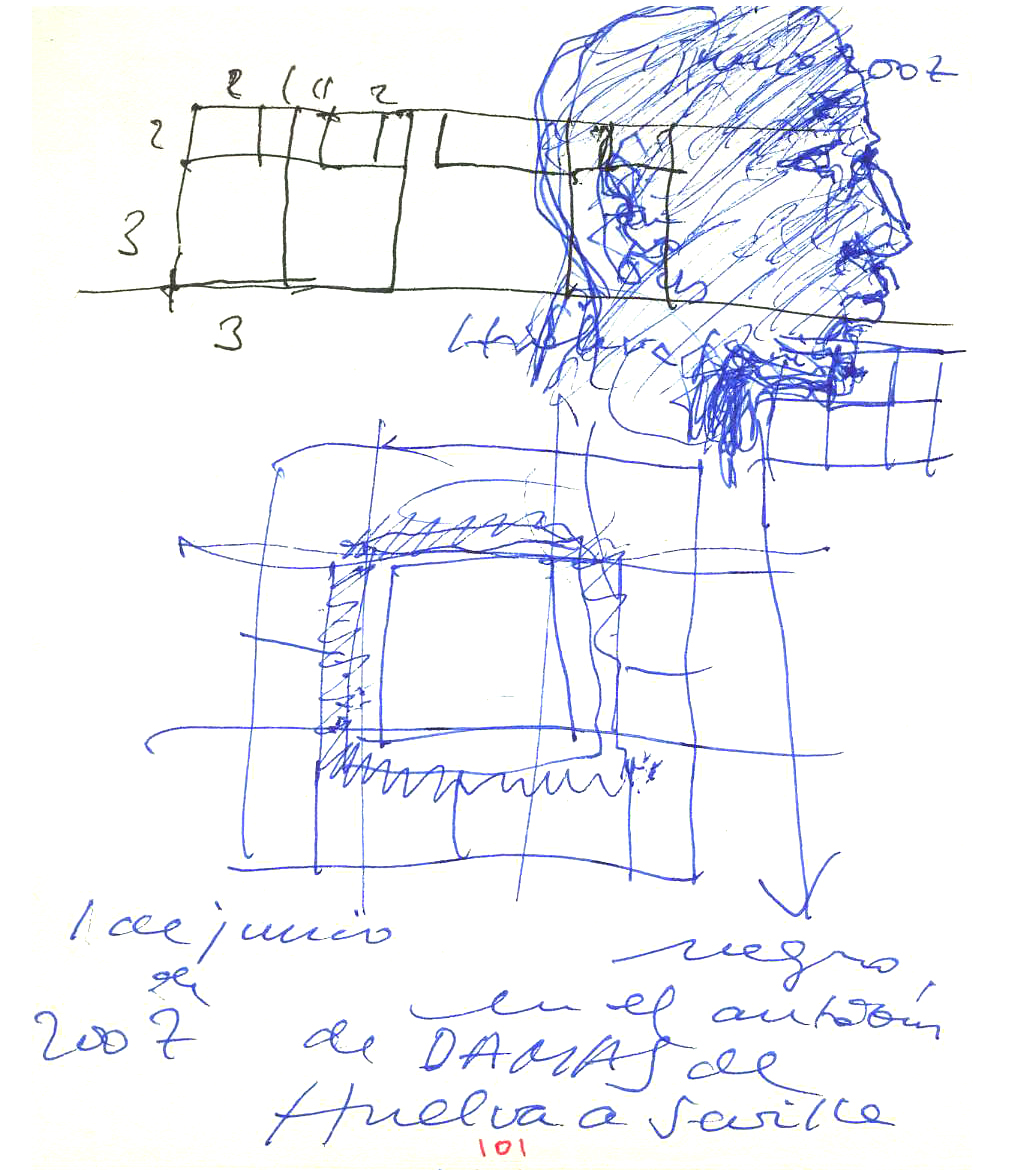 1 junio 2007
2 1 1 2
2
3
3
Huelva
1 de junio
de
2007
negro,
en el autobús
de DAMAS de
Huelva a Sevilla
101